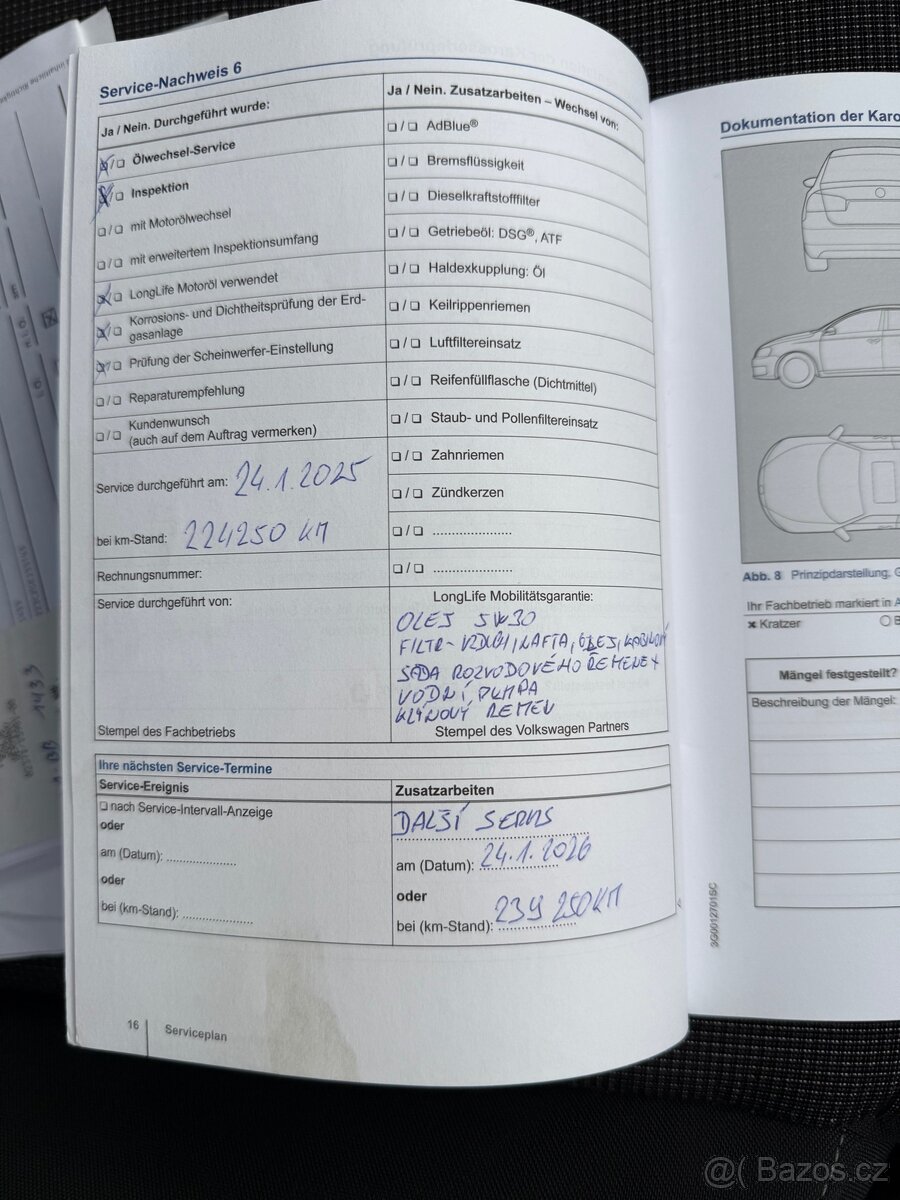 Service-Nachweis 6
Ja / Nein. Durchgeführt wurde:
☒/❑ Ölwechsel-Service
☒/❑ Inspektion
❑/❑ mit Motorölwechsel
❑/❑ mit erweitertem Inspektionsumfang
☒/❑ LongLife Motoröl verwendet
☒/❑ Korrosions- und Dichtheitsprüfung der Erd-
gasanlage
☒/❑ Prüfung der Scheinwerfer-Einstellung
❑/❑ Reparaturempfehlung
❑/❑ Kundenwunsch
(auch auf dem Auftrag vermerken)
Service durchgeführt am: 24.1.2025
bei km-Stand: 224250 KM
Rechnungsnummer:
Service durchgeführt von:
Stempel des Fachbetriebs
Ja / Nein. Zusatzarbeiten – Wechsel von:
❑/❑ AdBlue®
❑/❑ Bremsflüssigkeit
❑/❑ Dieselkraftstofffilter
❑/❑ Getriebeöl: DSG®, ATF
❑/❑ Haldexkupplung: Öl
❑/❑ Keilrippenriemen
❑/❑ Luftfiltereinsatz
❑/❑ Reifenfüllflasche (Dichtmittel)
❑/❑ Staub- und Pollenfiltereinsatz
❑/❑ Zahnriemen
❑/❑ Zündkerzen
❑/❑ ......................
❑/❑ ......................
LongLife Mobilitätsgarantie:
OLEJ 5W30
FILTR-VZDUCH, NAFTA, OLEJ, KABINOVÝ
SADA ROZVODOVÉHO ŘEMENE +
VODNÍ PUMPA
KLÍNOVÝ ŘEMEN
Stempel des Volkswagen Partners
Ihre nächsten Service-Termine
Service-Ereignis
❑ nach Service-Intervall-Anzeige
oder
am (Datum): ...................
oder
bei (km-Stand): ...................
Zusatzarbeiten
DALŠÍ SERVIS
am (Datum): 24.1.2026
oder
bei (km-Stand): 239 250 KM
16 Serviceplan
Dokumentation der Karo
Abb. 8 Prinzipdarstellung, G
Ihr Fachbetrieb markiert in A
✖ Kratzer
Mängel festgestellt?
Beschreibung der Mängel:
3G0012701SC
@( Bazos.cz